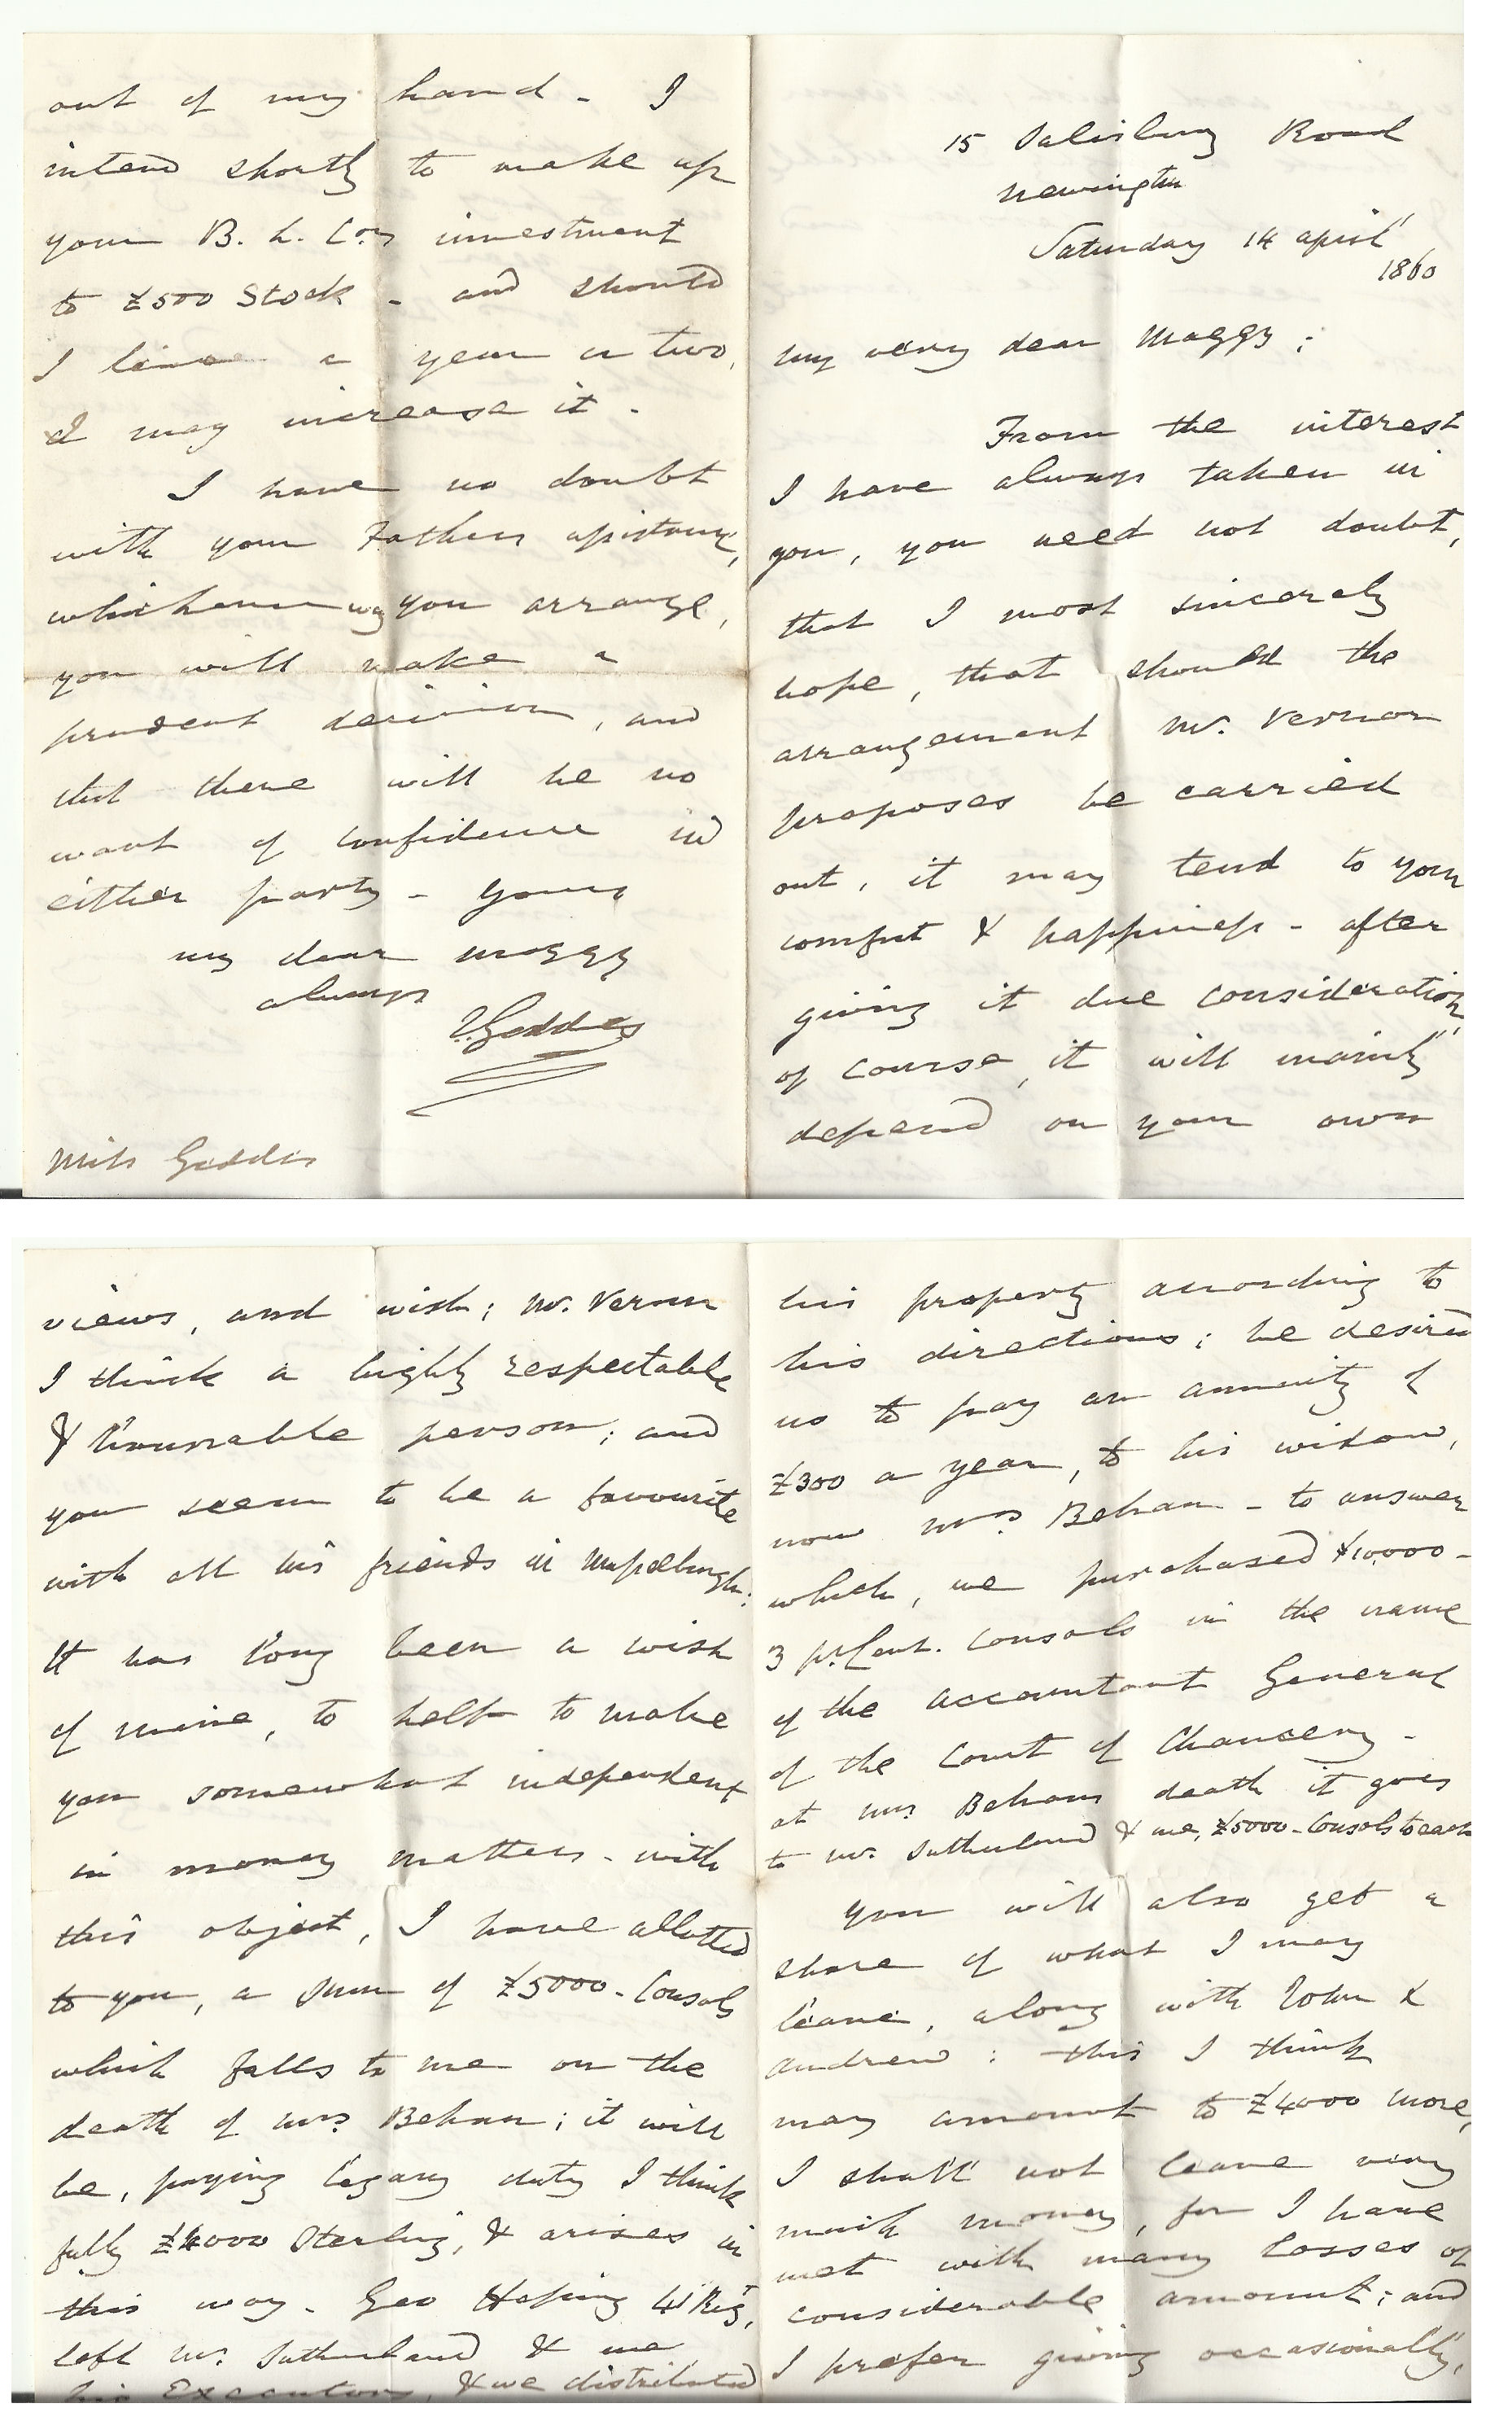 15 Salisbury Road
Newington
Saturday 14 April
1860
My very dear Maggy ;
From the interest
I have always taken in
you, you need not doubt,
that I most sincerely
hope, that should the
arrangement Mr. Vernon
proposes be carried
out, it may tend to your
comfort & happiness - after
giving it due consideration,
of course, it will mainly
depend on your own
views, and wish; Mr. Vernon
I think a highly respectable
& honourable person; and
you seem to be a favourite
with all his friends in Musselburgh:
It has long been a wish
of mine, to help to make
you somewhat independent
in money matters - with
this object, I have allotted
to you, a sum of £5000 - Consols
which falls to me on the
death of Mrs Behan; it will
be, paying legacy duty I think
fully £4000 Sterling, & arises in
this way - Geo 41 Regt,
left Mr. Sutherland & me
his Executors, & we distributed
his property according to
his directions; he desired
us to pay an annuity of
£300 a year, to his widow,
now Mrs Behan - to answer
which, we purchased £10,000 -
3 pr. Cent. Consols in the name
of the Accountant General
of the Court of Chancery -
at Mrs Behans death it goes
to Mr. Sutherland & me, £5000 - Consols to each
You will also get a
share of what I may
leave, along with John &
Andrew : this I think
may amount to £4000 more,
I shall not leave very
much money, for I have
met with many losses of
considerable amount; and
I prefer giving occasionally,
out of my hand - I
intend shortly to make up
your B. L. Coy investment
to £500 Stock - and should
I live a year or two,
I may increase it -
I have no doubt
with your Fathers assistance,
whichever way you arrange,
you will make a
prudent decision, and
that there will be no
want of confidence in
either party - Yours
my dear Maggy
always
Geddes
Miss Geddes